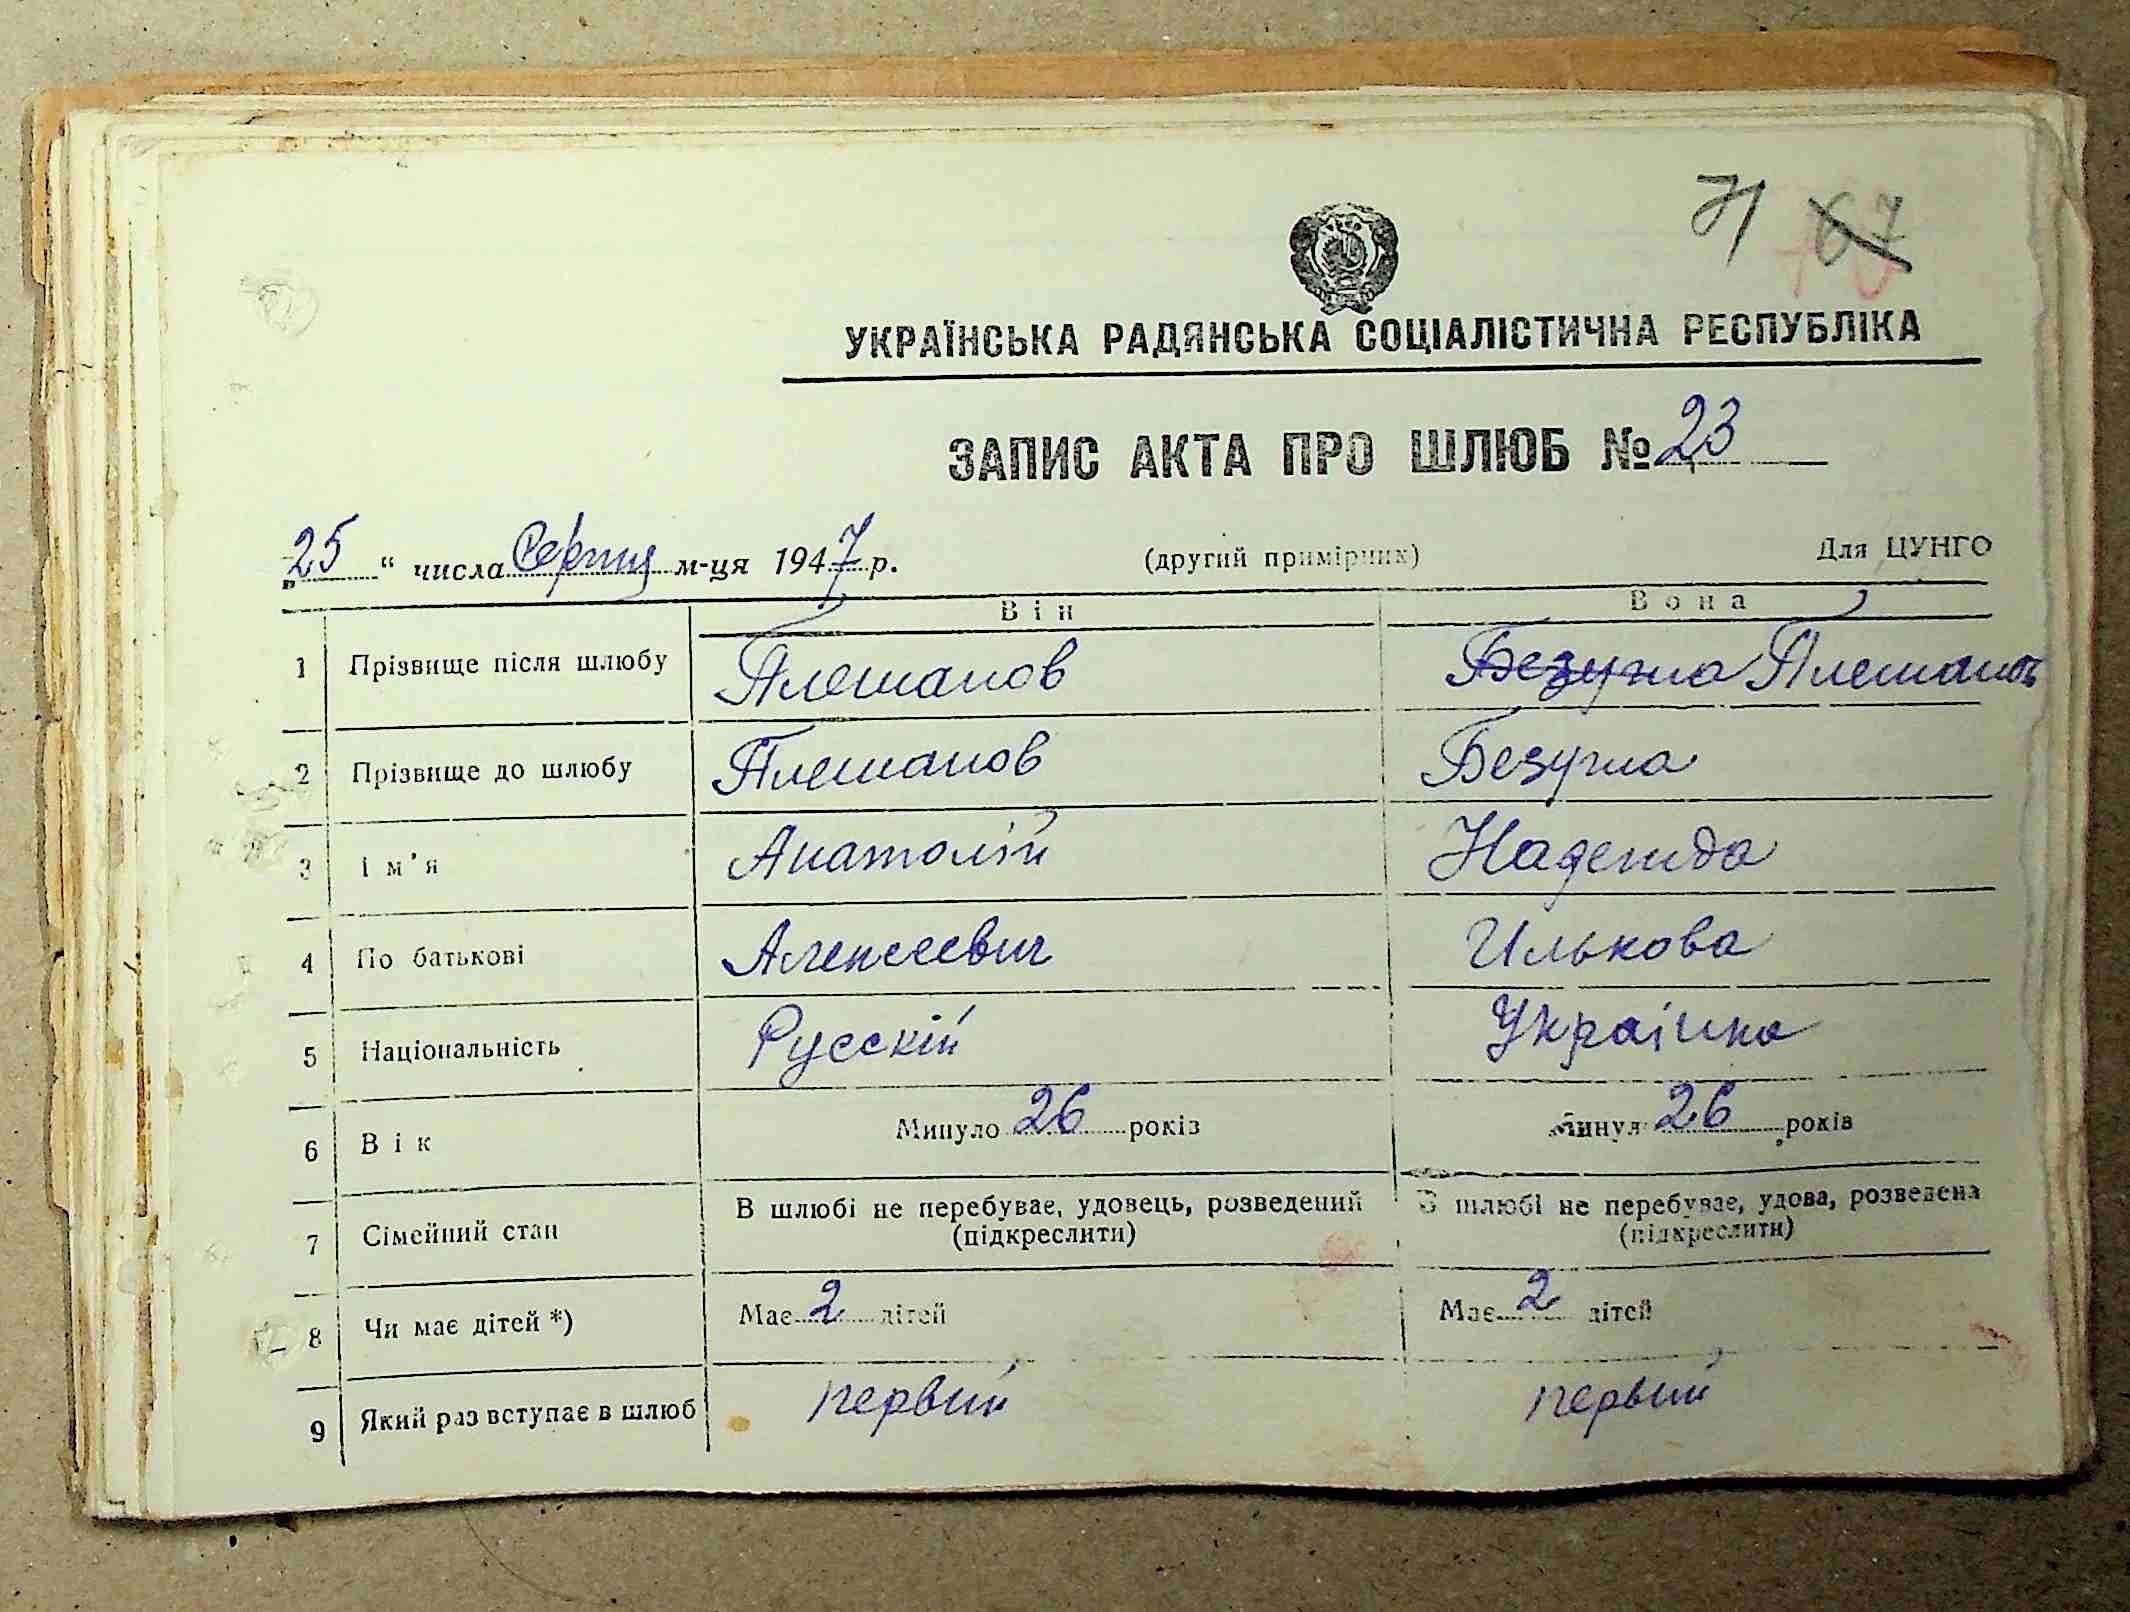 71 67
УКРАЇНСЬКА РАДЯНСЬКА СОЦІАЛІСТИЧНА РЕСПУБЛІКА
ЗАПИС АКТА ПРО ШЛЮБ № 23
„25“ числа Серпня м-ця 1947 р. (другий примірник) Для ЦУНГО
Він Вона
1 Прізвище після шлюбу Плешанов Безугла Плешанов
2 Прізвище до шлюбу Плешанов Безугла
3 Ім'я Анатолій Надежда
4 По батькові Алексеевич Илькова
5 Національність Русскій Українка
6 Вік Минуло 26 років Минул 26 років
7 Сімейний стан В шлюбі не перебуває, удовець, розведений В шлюбі не перебуває, удова, розведена
(підкреслити) (підкреслити)
8 Чи має дітей *) Має 2 дітей Має 2 дітей
9 Який раз вступає в шлюб первий первий